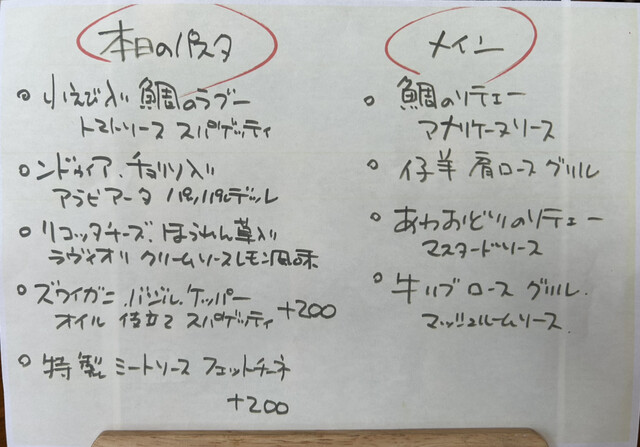 本日のパスタ
○ 小えび入り 鯛のラグー
トマトソース スパゲッティ
○ ンドゥイア、チョリソ入り
アラビアータ パッパルデッレ
○ リコッタチーズ、ほうれん草入り
ラヴィオリ クリームソースレモン風味
○ ズワイガニ、バジル、ケッパー
オイル仕立て スパゲッティ +200
○ 特製ミートソース フェットチーネ
+200
メイン
○ 鯛のソテェー
アメリケーヌソース
○ 仔羊 肩ロース グリル
○ あわおどりのソテェー
マスタードソース
○ 牛リブロース グリル
マッシュルームソース